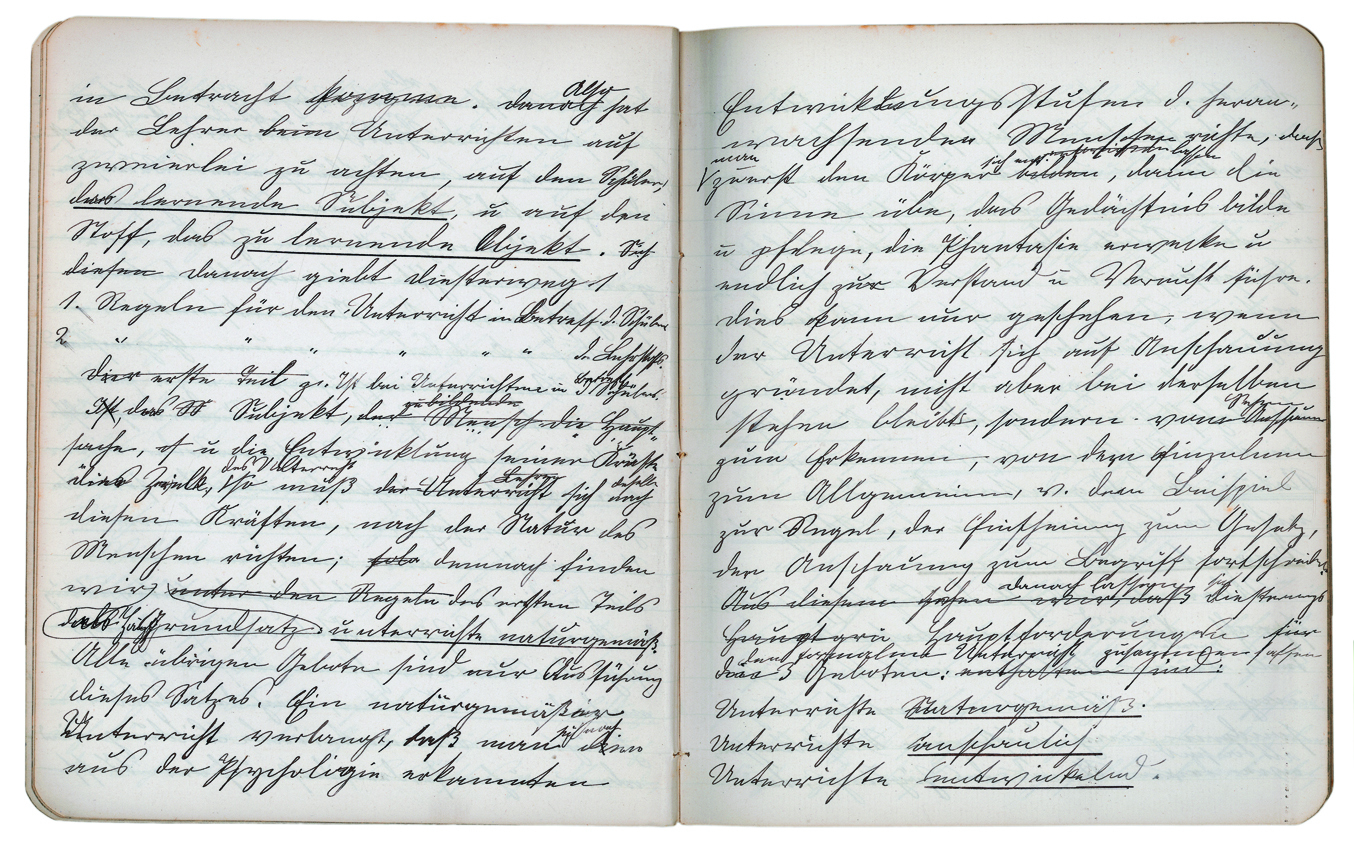 in Betracht komme. danach Also hat
der Lehrer beim Unterrichten auf
zweierlei zu achten, auf den Schüler,
das lernende Subjekt, u auf den
Stoff, das zu lernende Objekt. Nach
diesen danach giebt Diesterweg 1
1. Regeln für den Unterricht in Betreff d. Schülers
2 " " " " " " d. Lehrstoffs.
Der erste Teil Ist bei Unterrichten in d. Schülers
Ist, das Subjekt, der zu bildende Mensch die Haupt-
sache, u die Entwicklung seiner Kräfte
dies Zweck, des Unterrichts so muß der Unterricht Lehrer sich nach
diesen Kräften, nach der Natur des
Menschen richten; demnach finden
wir unter den Regeln des ersten Teils
als Grundsatz: unterrichte naturgemäß.
Alle übrigen Gebote sind nur Ausführung
dieses Satzes. Ein naturgemäßer
Unterricht verlangt, daß man sich nach den
aus der Psychologie erkannten
Entwicklungsstufen d. heran-
wachsenden Menschen richte, daß
man zuerst den Körper sich bilden, dann die
Sinne übe, das Gedächtnis bilde
u pflege, die Phantasie erwecke u
endlich zur Verstand u Vernunft führe.
Dies kann nur geschehen, wenn
der Unterricht sich auf Anschauung
gründet, nicht aber bei derselben
stehen bleibt, sondern vom Anschauen
zum Erkennen, von dem Einzelnen
zum Allgemeinen, v. dem Beispiel
zur Regel, der Anschauung zum Begriff fortschreitet.
Aus diesem sehen wir, daß danach lassen sich Diesterwegs
Hauptgrü Hauptforderungen für
den formalen Unterricht zusammen fassen
in 3 Geboten: enthalten sind:
Unterrichte naturgemäß.
Unterrichte anschaulich.
Unterrichte entwickelnd.